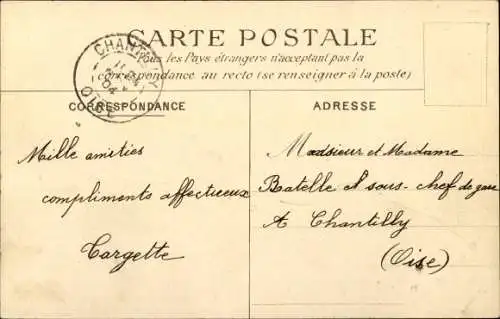 CARTE POSTALE
Tous les Pays étrangers n'acceptant pas la
correspondance au recto (se renseigner à la poste)
CHANTILLY
OISE
CORRESPONDANCE
ADRESSE
Mille amitiés
compliments affectueux
Cargette
Monsieur et Madame
Batelle sous-chef de gare
A Chantilly
(Oise)